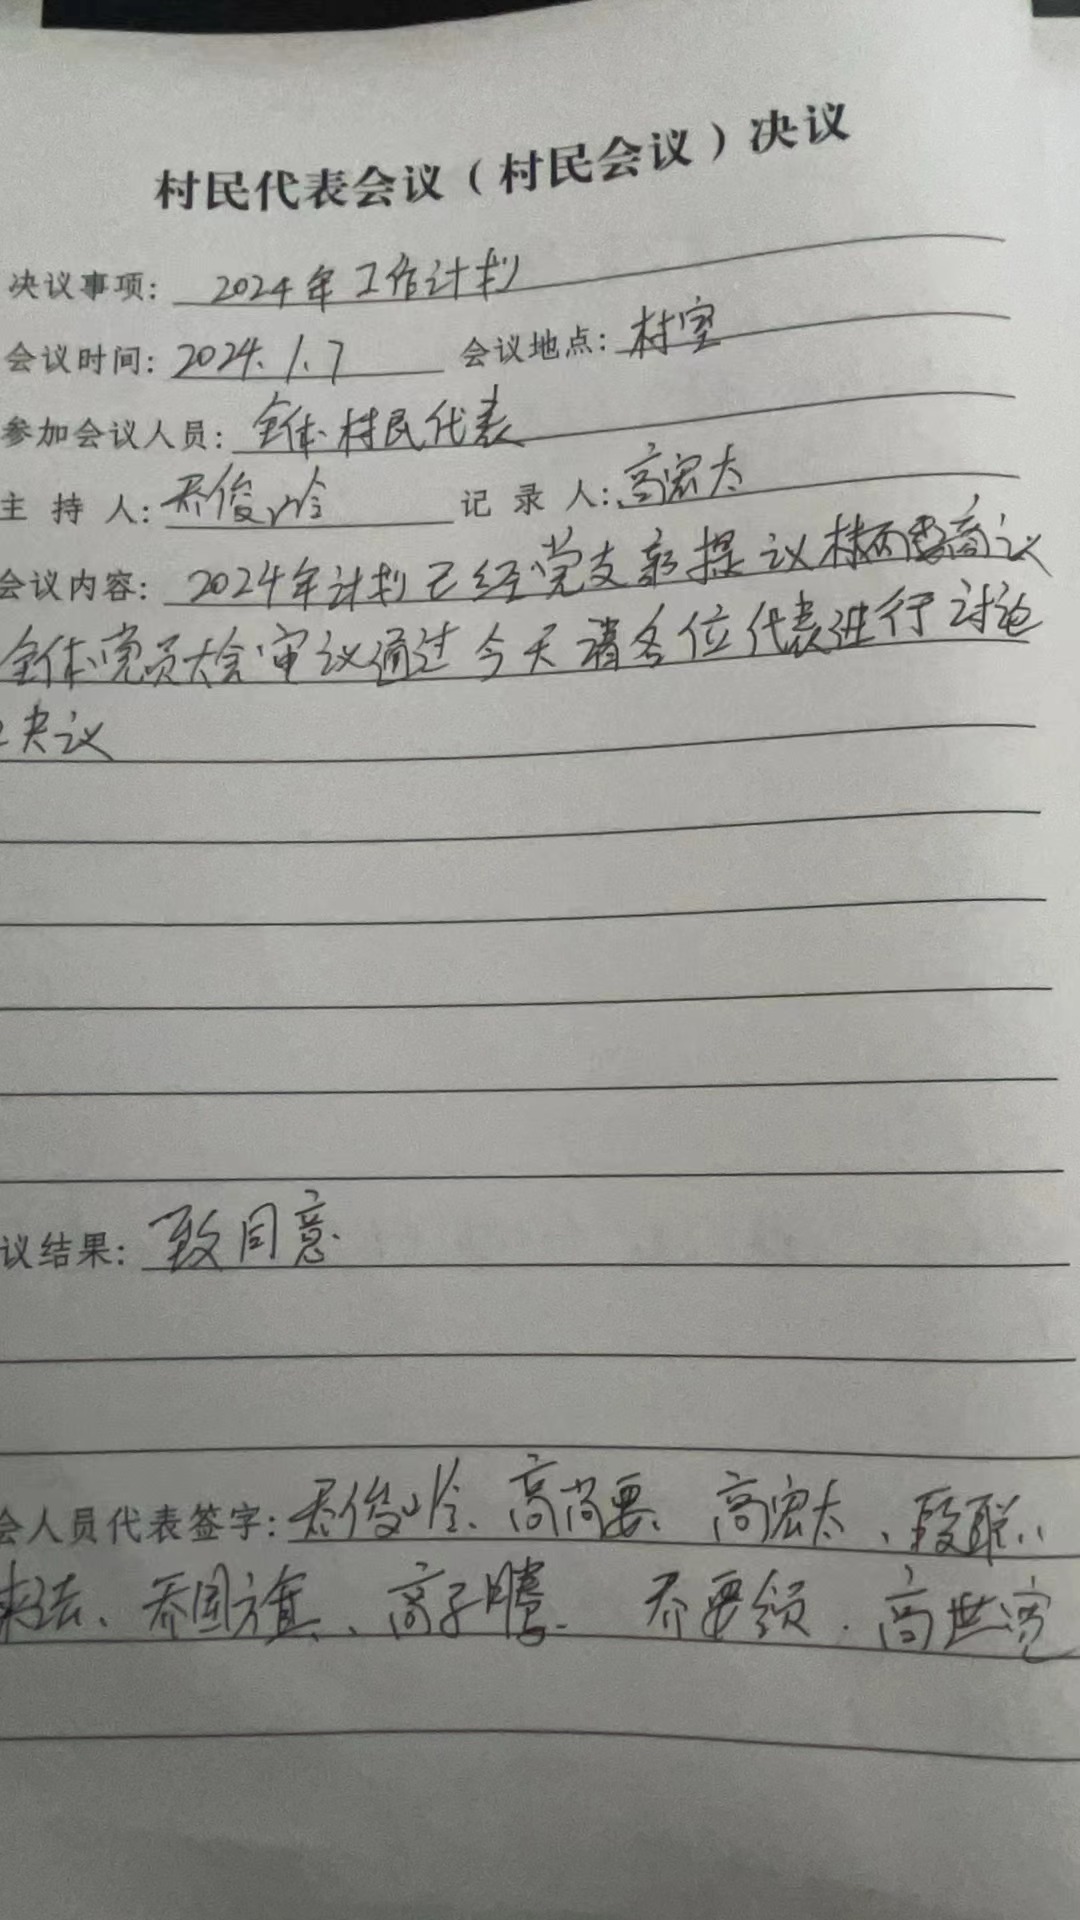 村民代表会议（村民会议）决议
决议事项：2024年工作计划
会议时间：2024.1.7 会议地点：村室
参加会议人员：全体村民代表
主持人：乔俊岭 记录人：高宏太
会议内容：2024年计划已经党支部提议村两委商议
全体党员大会审议通过今天请各位代表进行讨论
决议
议结果：一致同意
会人员代表签字：乔俊岭、高尚要、高宏太、段联
乔国旗、高子腾、乔要领、高世